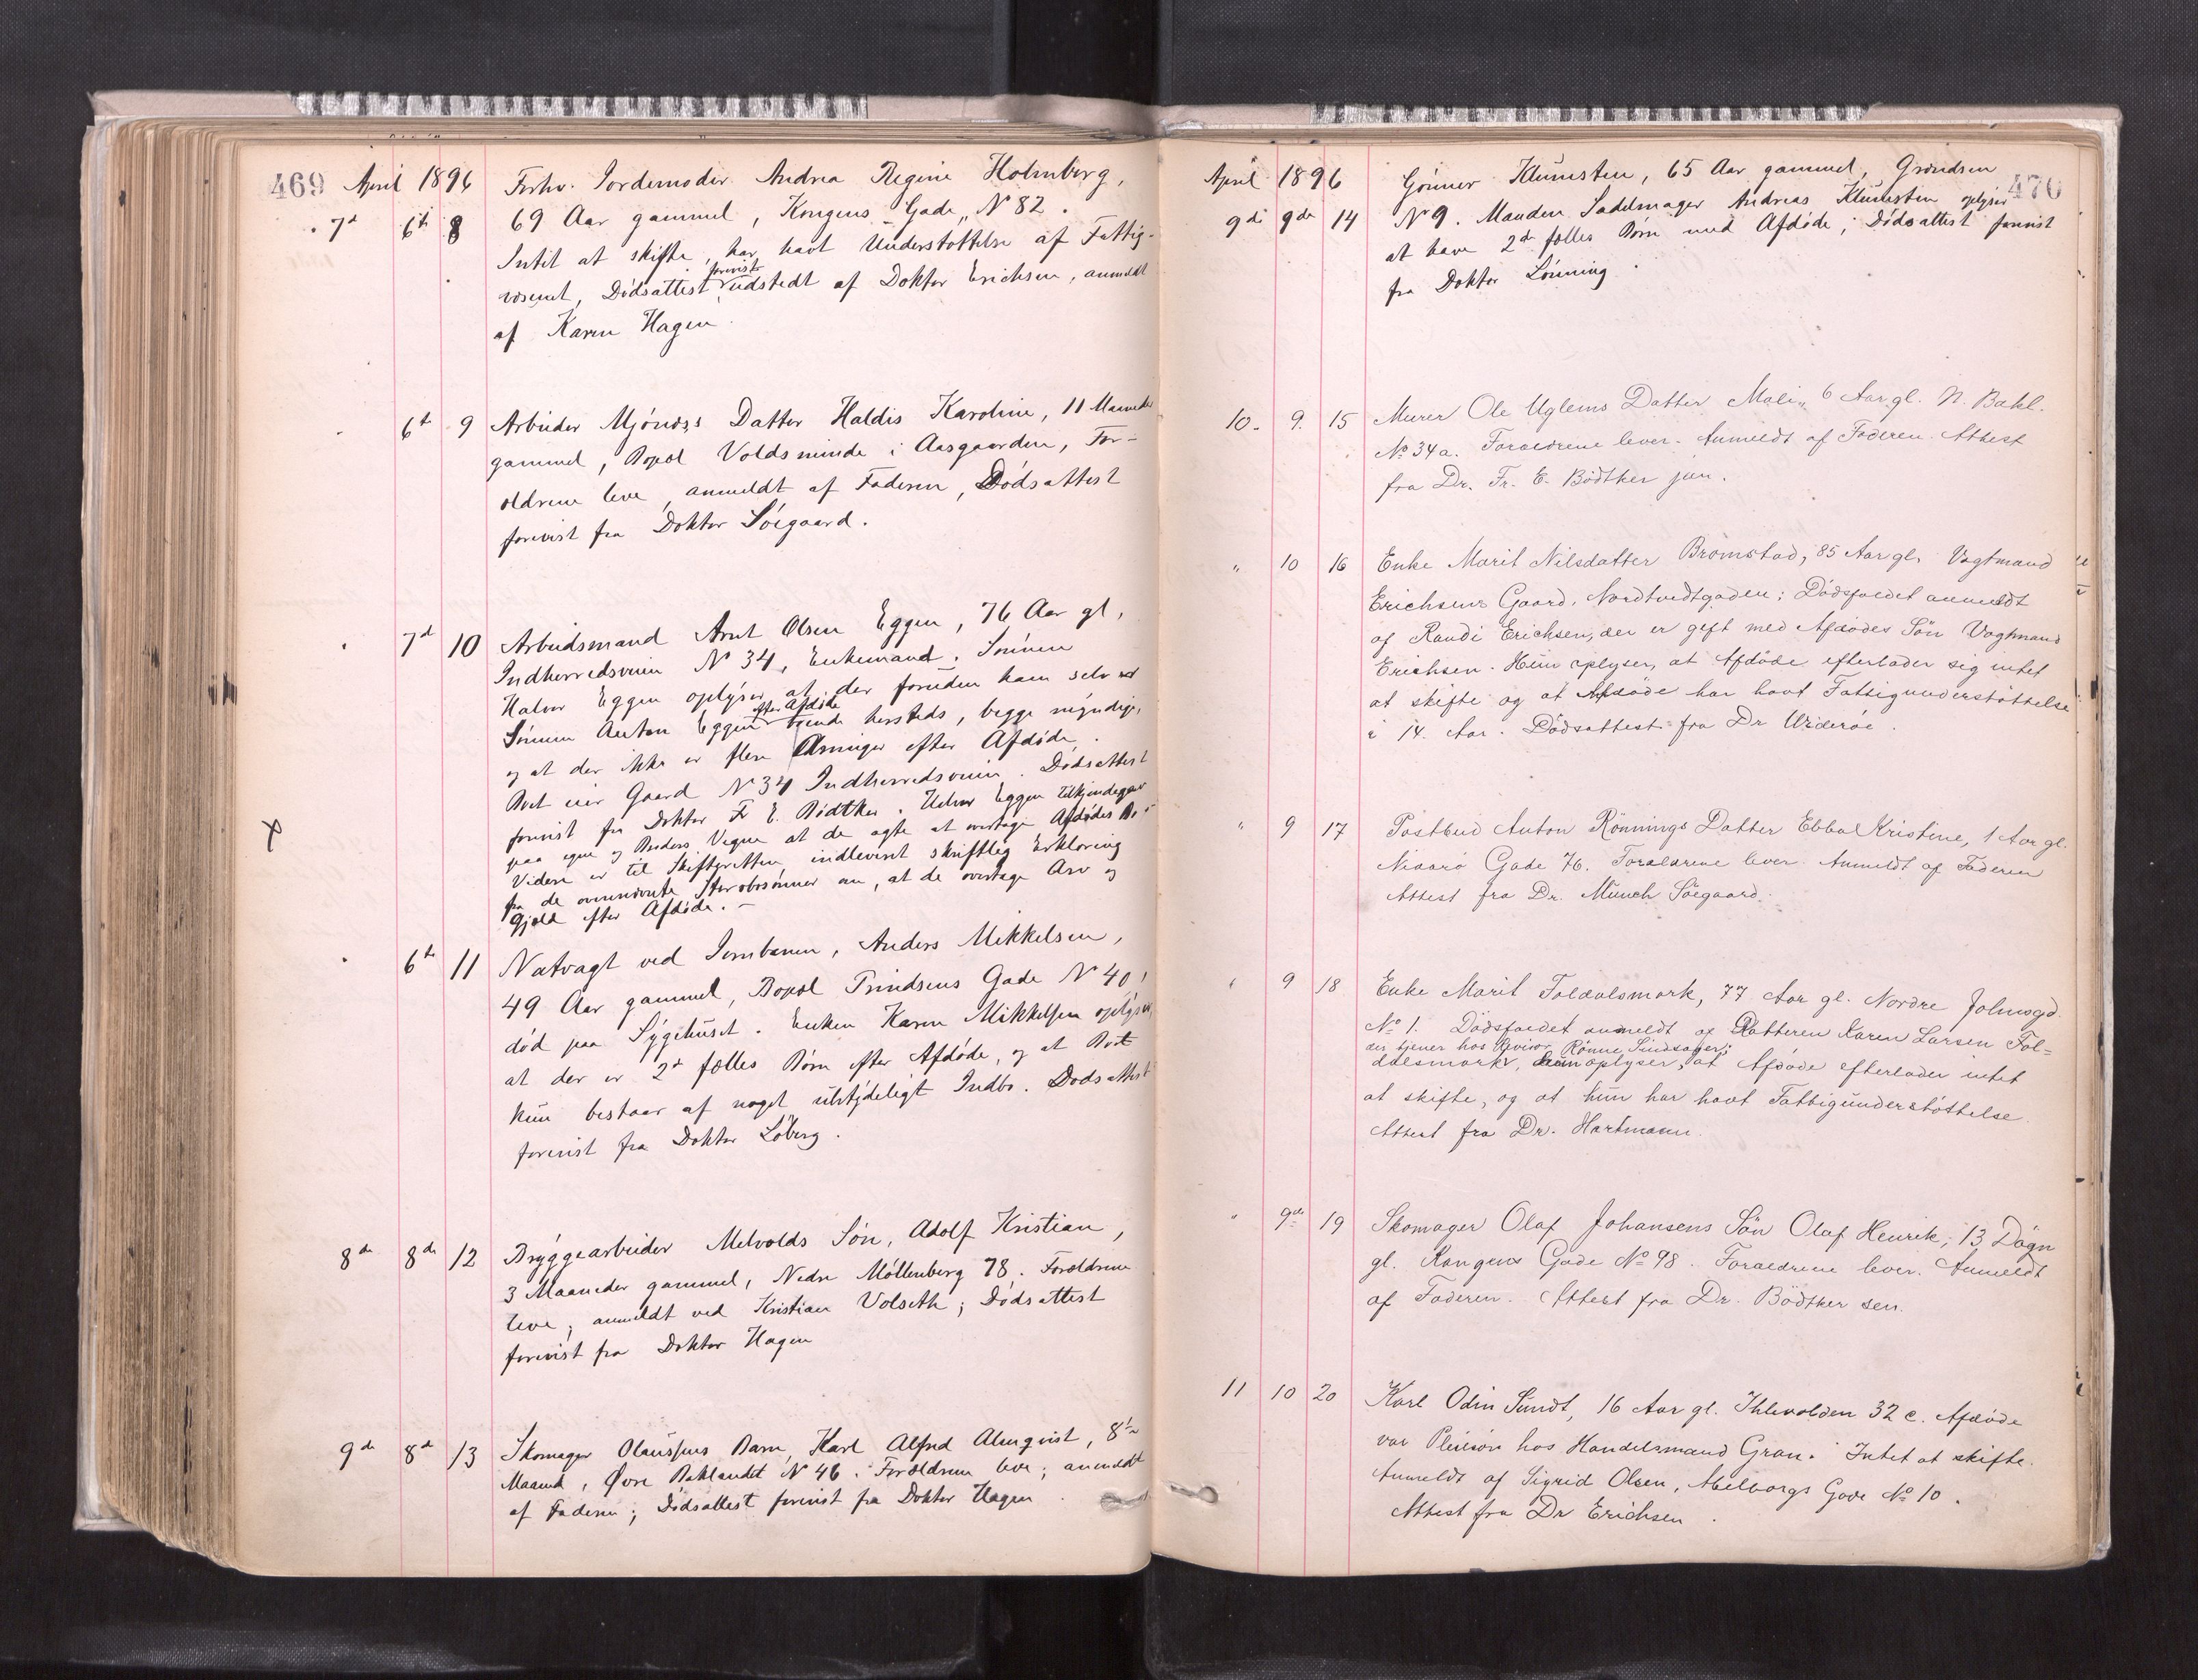 469 April 1896 Forhv. Jordemoder Andrea Regine Holmberg,
7d 6th 8 69 Aar gammel, Kongens Gade, N 82.
Intet at skifte, har havt Understøttelse af Fattig-
forevist
væsenet, Dødsattest udstedt af Doktor Erichsen, anmeldt
af Karen Hagen.
6th 9 Arbeider Mjønæss Datter Haldis Karoline, 11 Maaneder
gammel, Bopæl Voldsminde i Aasgaarden, For-
ældrene leve, anmeldt af Faderen, Dødsattest
forevist fra Doktor Søegaard.
7d 10 Arbeidsmand Arnt Olsen Eggen, 76 Aar gl,
Indherredsveien N 34, Enkemand. Sønnen
Halvor Eggen oplyser at der foruden ham selv er
efter Afdøde
Sønnen Anton Eggen boende hersteds, begge myndige,
og at der ikke er flere Arvinger efter Afdøde.
Boet eier Gaard N 34 Indherredsveien. Dødsattest
forevist fra Doktor Fr E. Bødtker. Halvor Eggen tilkjendegav
paa egne og Broders Vegne at de agte at overtage Afdødes Bo
Videre er til Skifteretten indleveret skriftlig Erklæring
fra de ovennævnte Stervbosønner om, at de overtage Arv og
Gjæld efter Afdøde.
6th 11 Natvagt ved Jernbanen, Anders Mikkelsen,
49 Aar gammel, Bopæl Prindsens Gade N 40,
død paa Sygehuset. Enken Karen Mikkelsen oplyser,
at der er 2d fælles Børn efter Afdøde, og at Boet
kun bestaar af noget ubetydeligt Indbo. Dødsattest
forevist fra Doktor Løberg.
8de 8de 12 Bryggearbeider Melvolds Søn, Adolf Kristian,
3 Maaneder gammel, Nedre Møllenberg 78. Forældrene
leve; anmeldt ved Kristian Volseth; Dødsattest
forevist fra Doktor Hagen
9de 8de 13 Skomager Olaussens Barn, Karl Alfred Almqvist, 8½
Maaned, Øvre Baklandet N 46. Forældrene leve; anmeldt
af Faderen; Dødsattest forevist fra Doktor Hagen
April 1896 Gønner Klumsten, 65 Aar gammel, Grændsen 470
9de 9de 14 N 9. Manden Sadelmager Andreas Klumsten oplyser
at have 2de fælles Børn med Afdøde; Dødsattest forevist
fra Doktor Lønning.
10. 9. 15 Murer Ole Uglems Datter Mali, 6 Aar gl. N. Bakl.
No 34a. Foraeldrene lever. Anmeldt af Faderen. Attest
fra Dr. Fr. E. Bødtker jun.
" 10 16 Enke Marit Nilsdatter Bromstad, 85 Aar gl. Vagtmand
Erichsens Gaard, Nordtvedtgaden; Dødsfaldet anmeldt
af Randi Erichsen, der er gift med Afdødes Søn Vagtmand
Erichsen. Hun oplyser, at Afdøde efterlader sig intet
at skifte og at Afdøde har havt Fattigunderstøttelse
i 14. Aar. Dødsattest fra Dr Widerøe.
" 9 17 Postbud Anton Rönnings Datter Ebba Kristine, 1 Aar gl.
Nidarø Gade 76. Foraeldrene lever. Anmeldt af Faderen
Attest fra Dr. Münch Söegaard.
" 9 18 Enke Marit Foldalsmark, 77 Aar gl. Nordre Jolmsgd.
No 1. Dødsfaldet anmeldt af Datteren Karen Larsen Fol=
der tjener hos Revisor Rönne, Sindsager;
dalsmark, hun oplyser, at Afdøde efterlader intet
at skifte, og at hun har havt Fattigunderstøttelse.
Attest fra Dr. Hartmann.
" 9de 19 Skomager Olaf Johansens Søn Olaf Henrik, 13 Døgn
gl. Kongens Gade No 98. Foraeldrene lever. Anmeldt
af Faderen. Attest fra Dr. Bödtker sen.
11 10 20 Karl Odin Sundt, 16 Aar gl. Ihlevolden 32 c. Afdøde
var Pleiesøn hos Handelsmand Gran. Intet at skifte.
Anmeldt af Sigrid Olsen, Mellborgs Gade No 10.
Attest fra Dr Erichsen.